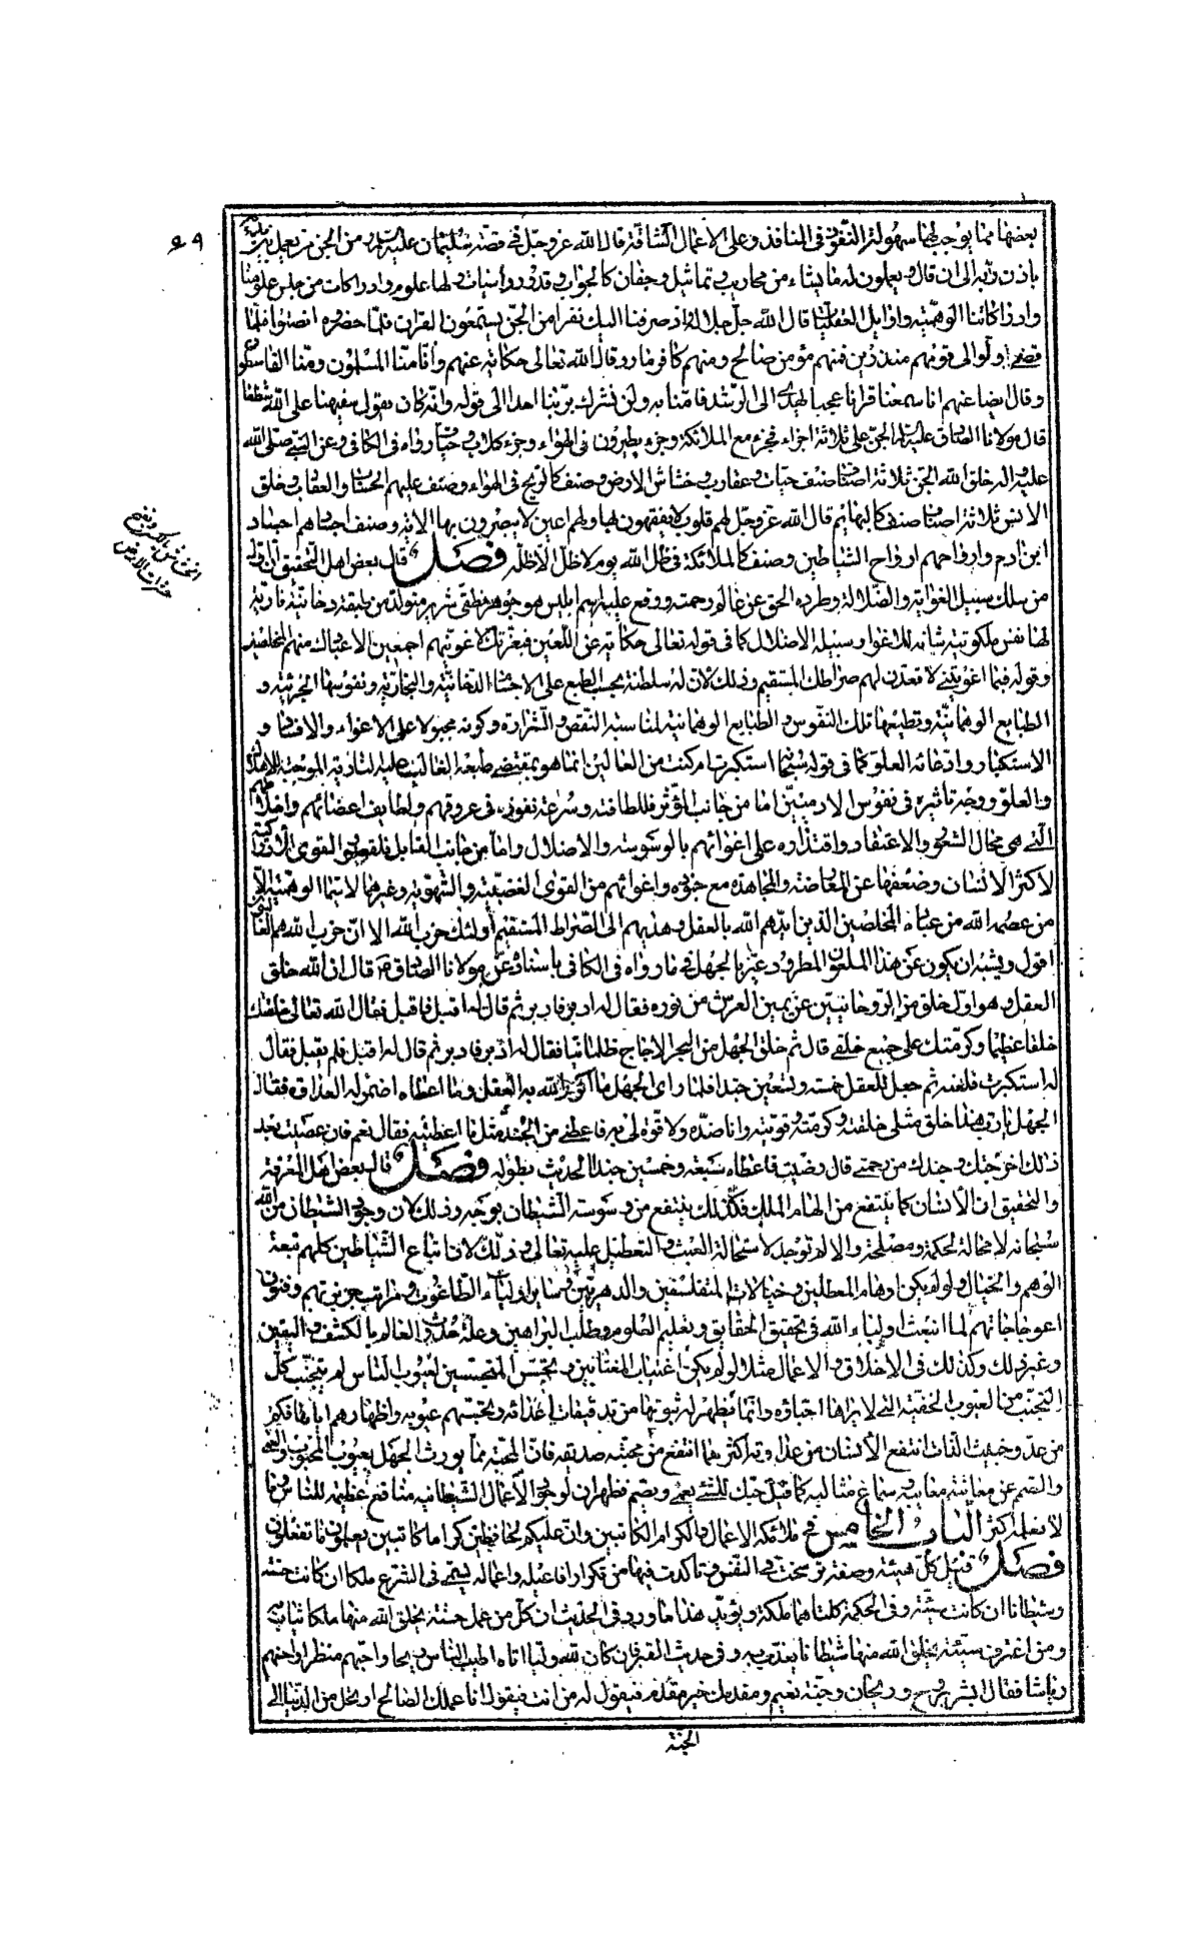 ٤٩
بعضها مما يوجب لها سهولة النفوذ فى المنافذ وعلى الاعمال الشاقة قال الله عز وجل فى قصة سليمان عليه السلام ومن الجن من يعمل بين يديه
باذن ربه الى ان قال يعملون له ما يشاء من محاريب وتماثيل وجفان كالجواب وقدور راسيات ولها علوم وادراكات من جنس علومنا
وادراكاتنا الوهمية واوايل العقليات قال الله جل جلاله واذ صرفنا اليك نفرا من الجن يستمعون القران فلما حضروه قالوا انصتوا فلما
قضى ولوا الى قومهم منذرين فمنهم مؤمن صالح ومنهم كافر مارد قال الله تعالى حكاية عنهم وانا منا المسلمون ومنا القاسطون
وقال ايضا عنهم انا سمعنا قرانا عجبا يهدى الى الرشد فامنا به ولن نشرك بربنا احدا الى قوله وانه كان يقول سفيهنا على الله شططا
قال مولانا الصادق عليه السلام الجن على ثلاثة اجزاء فجزء مع الملائكة وجزء يطيرون فى الهواء وجزء كلاب وحيات رواه فى الكافى وعن النبى صلى الله
عليه واله خلق الله الجن ثلاثة اصناف صنف حيات وعقارب وخشاش الارض وصنف كالريح فى الهواء وصنف عليهم الحساب والعقاب وخلق
الانس ثلاثة اصناف صنف كالبهائم قال الله عز وجل لهم قلوب لا يفقهون بها ولهم اعين لا يبصرون بها الاية وصنف اجسادهم اجساد
ابن ادم وارواحهم ارواح الشياطين وصنف كالملائكة فى ظل الله يوم لا ظل الا ظله فصل قال بعض اهل التحقيق ان اول
من سلك سبيل الغواية والضلالة وطرده الحق عن عالم رحمته ووقع عليه اسم ابليس هو جوهر نطقى شرير متولد من طبقة دخانية نارية
لها نفس ملكوتية شانه الاغواء وسبيله الاضلال كما فى قوله تعالى حكاية عن اللعين فبعزتك لاغوينهم اجمعين الا عبادك منهم المخلصين
وقوله فبما اغويتنى لاقعدن لهم صراطك المستقيم وذلك لان له سلطنة بحسب الطبع على الاجسام الدخانية والبخارية ونفوسها الجزئية و
الطبايع الوهمانية وتطيعها تلك النفوس والطبايع الوهمانية لمناسبة النقص والشرارة وكونه مجبولا على الاغواء والافساد و
الاستكبار وادعائه العلو كما فى قوله سبحانه استكبرت ام كنت من العالين انما هو بمقتضى طبعه الغالب عليه النارية الموجبة للاهلاك
والعلو ووجه تاثيره فى نفوس الادميين اما من جانب المؤثر فللطافته وسرعة نفوذه فى عروقهم ولطايف اعضائهم واخلاطهم
التى هى مجال الشعور والاعتقاد واقتداره على اغوائهم بالوسوسة والاضلال واما من جانب القابل فلقصور القوى الادراكية
لاكثر الانسان وضعفها عن المعارضة والمجاهدة مع جنوده واعوانهم من القوى الغضبية والشهوية وغيرهما لا سيما الوهمية الا
من عصمه الله من عباده المخلصين الذين ايدهم الله بالعقل وهديهم الى الصراط المستقيم اولئك حزب الله الا ان حزب الله هم الغالبون
اقول ويشبه ان يكون عن هذا الملعون المطرود عبر بالجهل فى ما رواه فى الكافى باسناده عن مولانا الصادق ع قال ان الله خلق
العقل وهو اول خلق من الروحانيين عن يمين العرش من نوره فقال له ادبر فادبر ثم قال له اقبل فاقبل فقال الله تعالى خلقتك
خلقا عظيما وكرمتك على جميع خلقى قال ثم خلق الجهل من البحر الاجاج ظلمانيا فقال له ادبر فادبر ثم قال له اقبل فلم يقبل فقال
له استكبرت فلعنه ثم جعل للعقل خمسة وسبعين جندا فلما راى الجهل ما اكرم الله به العقل وما اعطاه اضمر له العداوة فقال
الجهل يا رب هذا خلق مثلى خلقته وكرمته وقويته وانا ضده ولا قوة لى به فاعطنى من الجند مثل ما اعطيته فقال نعم فان عصيت بعد
ذلك اخرجتك وجندك من رحمتى قال رضيت فاعطاه سبعة وخمسين جندا الحديث بطوله فصل قال بعض اهل المعرفة
والتحقيق ان الانسان كما ينتفع من الهام الملك فكذلك ينتفع من وسوسة الشيطان بوجه وذلك لان وجود الشيطان من الله
سبحانه لا محالة لحكمة ومصلحة والا لم توجد لاستحالة العبث والتعطيل عليه تعالى وذلك لان اتباع الشياطين كلهم تبعة
الوهم والخيال ولو لم يكن اوهام المعطلين وخيالات المتفلسفين والدهريين وساير اولياء الطاغوت ومراتب جربزتهم وفنون
اعوجاجاتهم لما انبعث اولياء الله فى تحقيق الحقايق وتعليم العلوم وطلب البراهين وعلة حدوث العالم بالكشف واليقين
وغير ذلك وكذلك فى الاخلاق والاعمال مثلا لو لم يكن اغتياب المغتابين وتجسس المتجسسين لعيوب الناس لم يتجنب كل
التجنب من العيوب الخفية التى لا يراها احباؤه وانما يظهر له ثبوتها من تدقيقات اعدائه وتجسسهم عيوبه واظهارهم اياها فكم
من عدو خبيث الذات انتفع الانسان من عداوته اكثر مما انتفع من محبة صديقه فان المحبة مما يورث الجهل بعيوب المحبوب والعمى
والصمم عن معاينة معايبه وسماع مثالبه كما قيل حبك للشئ يعمى ويصم فظهر ان لوجود الاعمال الشيطانية منافع عظيمة للناس وما
لا نعلمه اكثر الباب الخامس فى ملائكة الاعمال والكرام الكاتبين وان عليكم لحافظين كراما كاتبين يعلمون ما تفعلون
فصل قيل كل هيئة وصفة رسخت فى النفس وتاكدت فيها من تكرار افاعيله واعماله يسمى فى الشرع ملكا ان كانت حسنة
وشيطانا ان كانت سيئة وفى الحكمة كلتاهما ملكة ويؤيد هذا ما ورد فى الحديث ان كل من عمل حسنة يخلق الله منها ملكا يثاب به
ومن اقترف سيئة يخلق الله منها شيطانا يعذب به وفى حديث القبر فان كان لله وليا اتاه اطيب الناس ريحا واحبهم منظرا واحسنهم
رياشا فقال ابشر بروح وريحان وجنة نعيم ومقدمك خير مقدم فيقول له من انت فيقول انا عملك الصالح ارتحل من الدنيا الى
الجنة